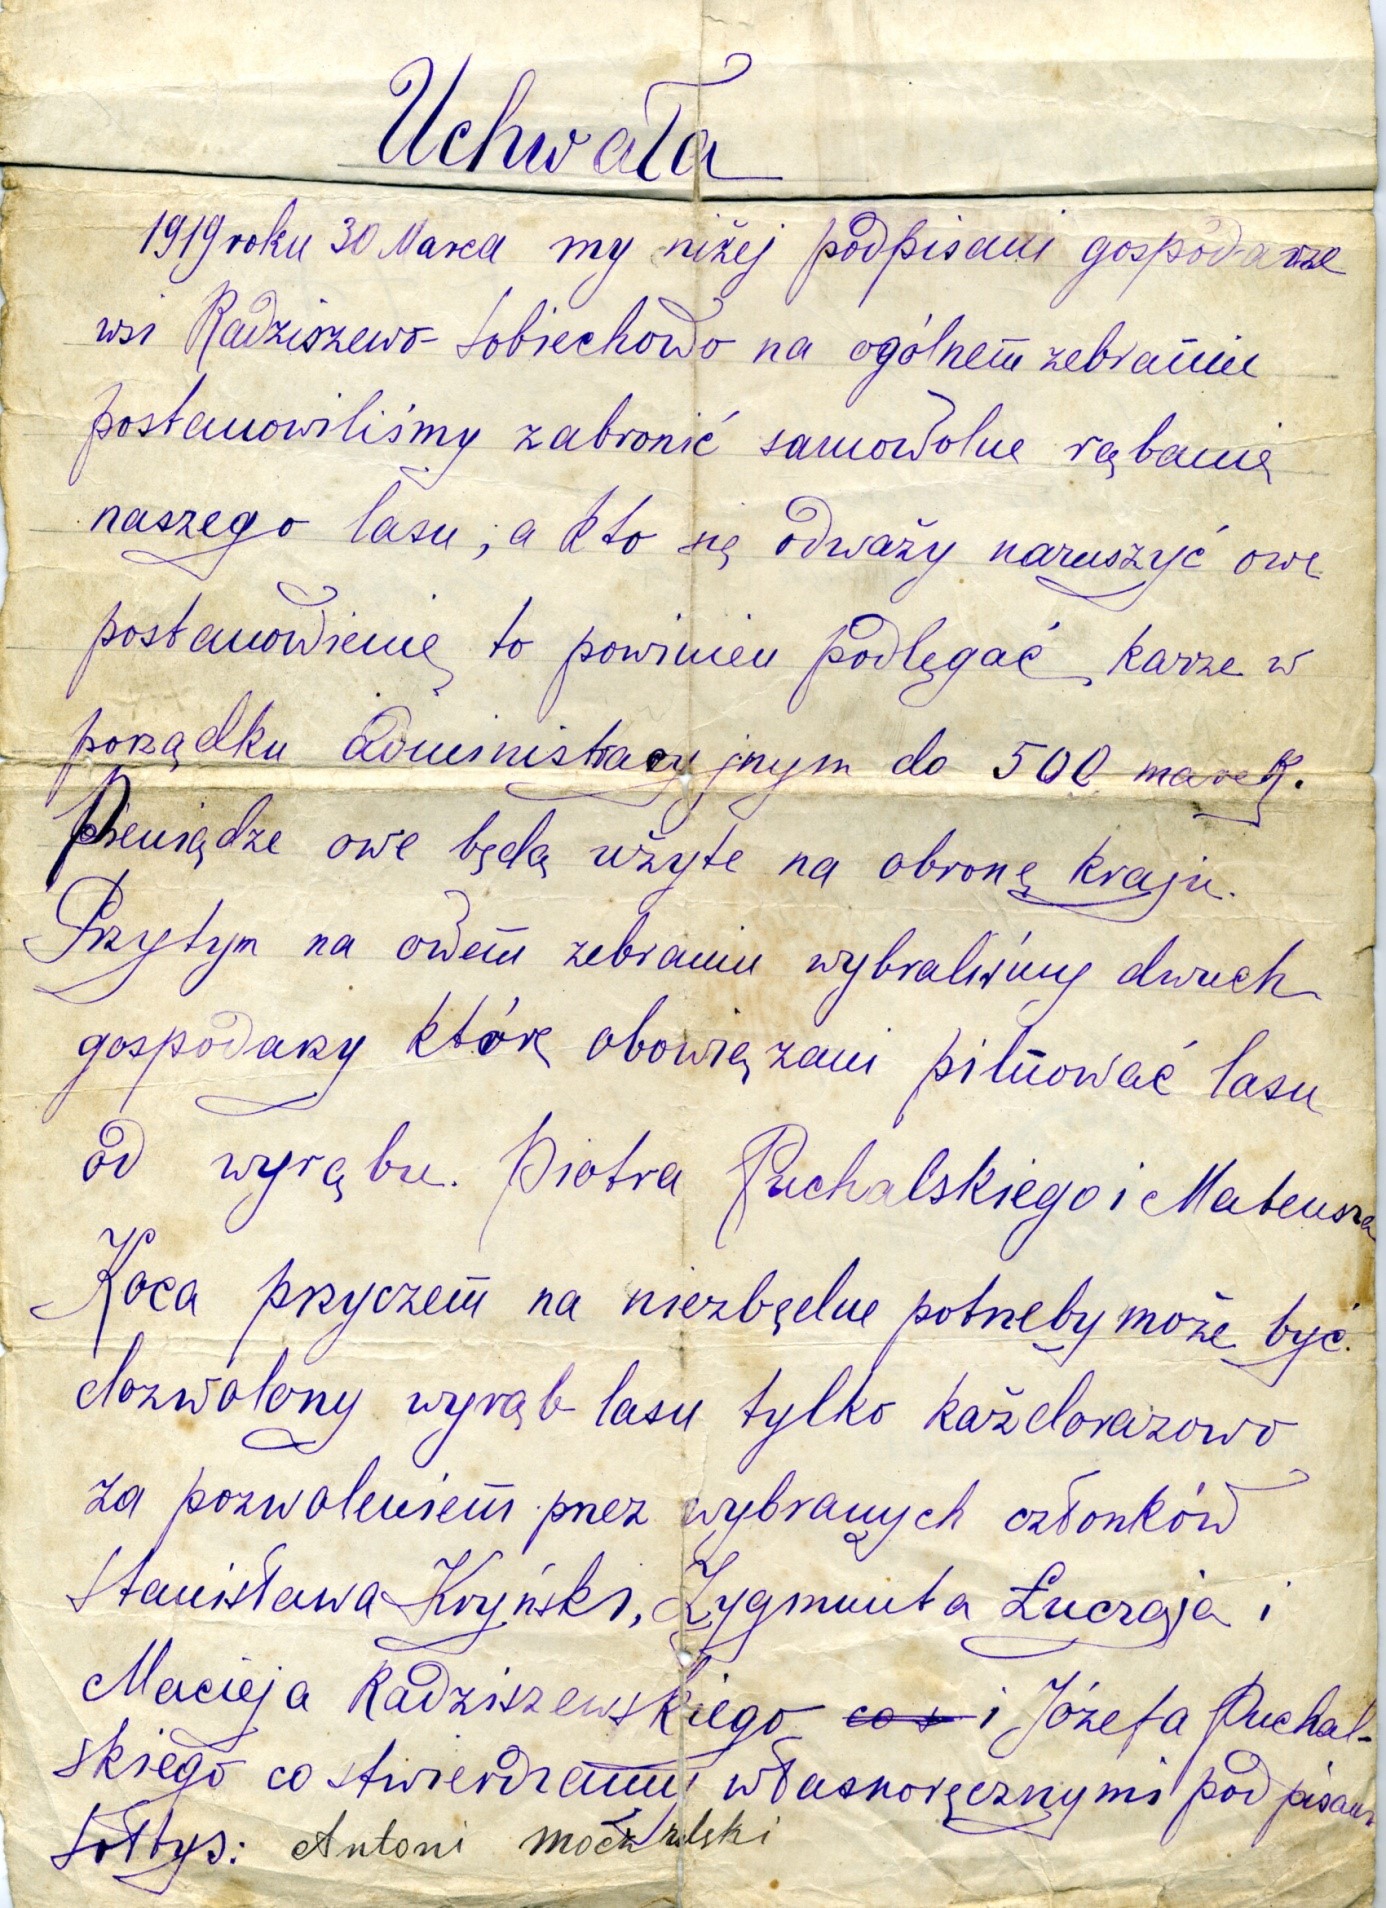 Uchwała
1919 roku 30 Marca my niżej podpisani gospodarze
wsi Radziszewo-Sobiechowo na ogólnem zebraniu
postanowiliśmy zabronić samowolne rąbanię
naszego lasu, a kto się odważy naruszyć owe
postanowienię to powinien podlęgać karze w
porządku administracyjnym do 500 marek.
Pieniądze owe będą użyte na obronę kraju.
Przytym na owem zebraniu wybraliśmy dwuch
gospodarzy którę obowiązani pilnować lasu
od wyrąbu. Piotra Puchalskiego i Mateusza
Koca przyczem na niezbędne potrzeby może być
dozwolony wyrąb lasu tylko każdorazowo
za pozwoleniem przez wybranych członków
Stanisława Kryński, Zygmunta Łuczaja i
Macieja Radziszewskiego co s i Józefa Puchal-
skiego co stwierdzamy własnoręcznymi podpisami
Sołtys: Antoni